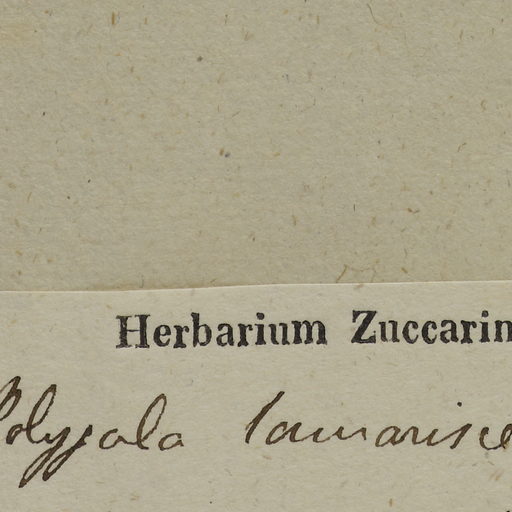 Herbarium Zuccarin
Polygala tamarisce